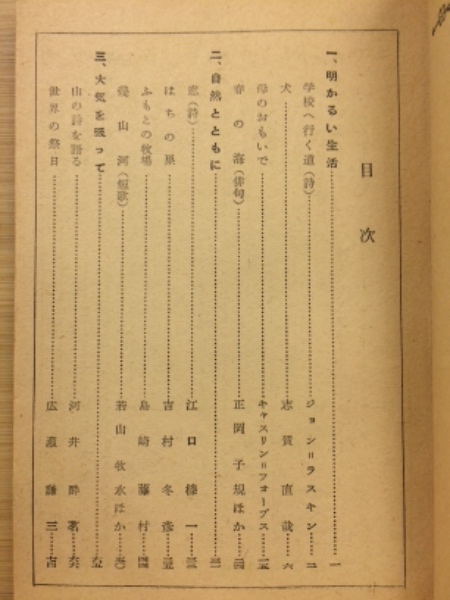 目次
一、明かるい生活……一
学校へ行く道(詩)……ジョン=ラスキン……二
犬……志賀直哉……六
母のおもいで……キャスリン=フォーブス……
春の海(俳句)……正岡子規ほか……
二、自然とともに……
(詩)……江口榛一……
はちの巣……吉村冬彦……
ふもとの牧場……島崎藤村……
幾山河(短歌)……若山牧水ほか……
三、大気を吸って……
山の詩を語る……河井酔茗……
世界の祭日……広瀬謙三……